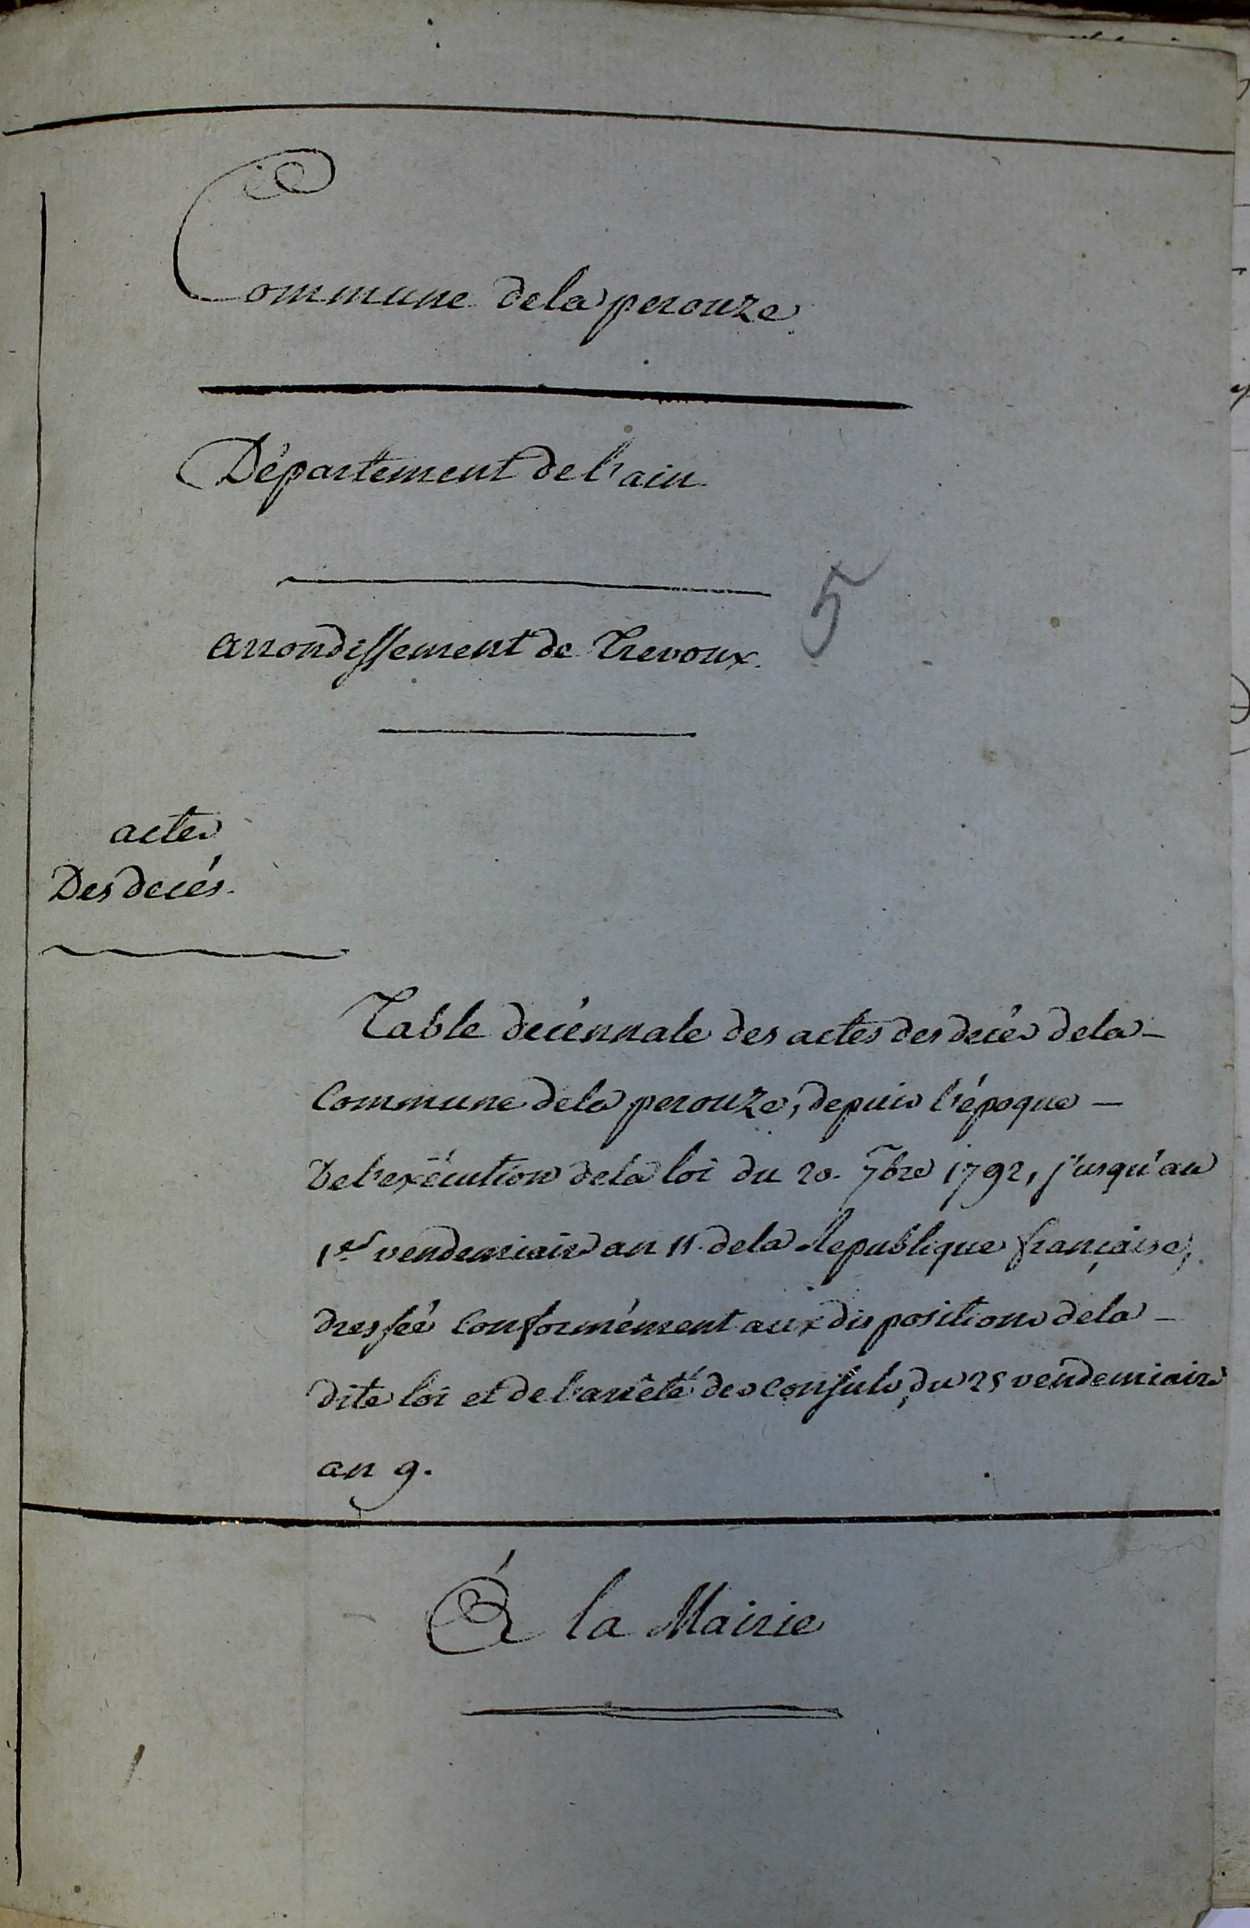 Commune dela perouze
Département de l'ain
5
arrondissement de Trevoux.
actes
Des decés.
Table décennale des actes des decés dela -
Commune dela perouze, depuis l'époque -
De l'exécution dela loi du 20. 7bre 1792, jusqu'au
1er vendemiaire an 11. dela Republique française,
dressée Conformément aux dispositions dela -
dite loi et de l'arrêté des Consuls, du 25 vendemiaire
an 9.
À la Mairie